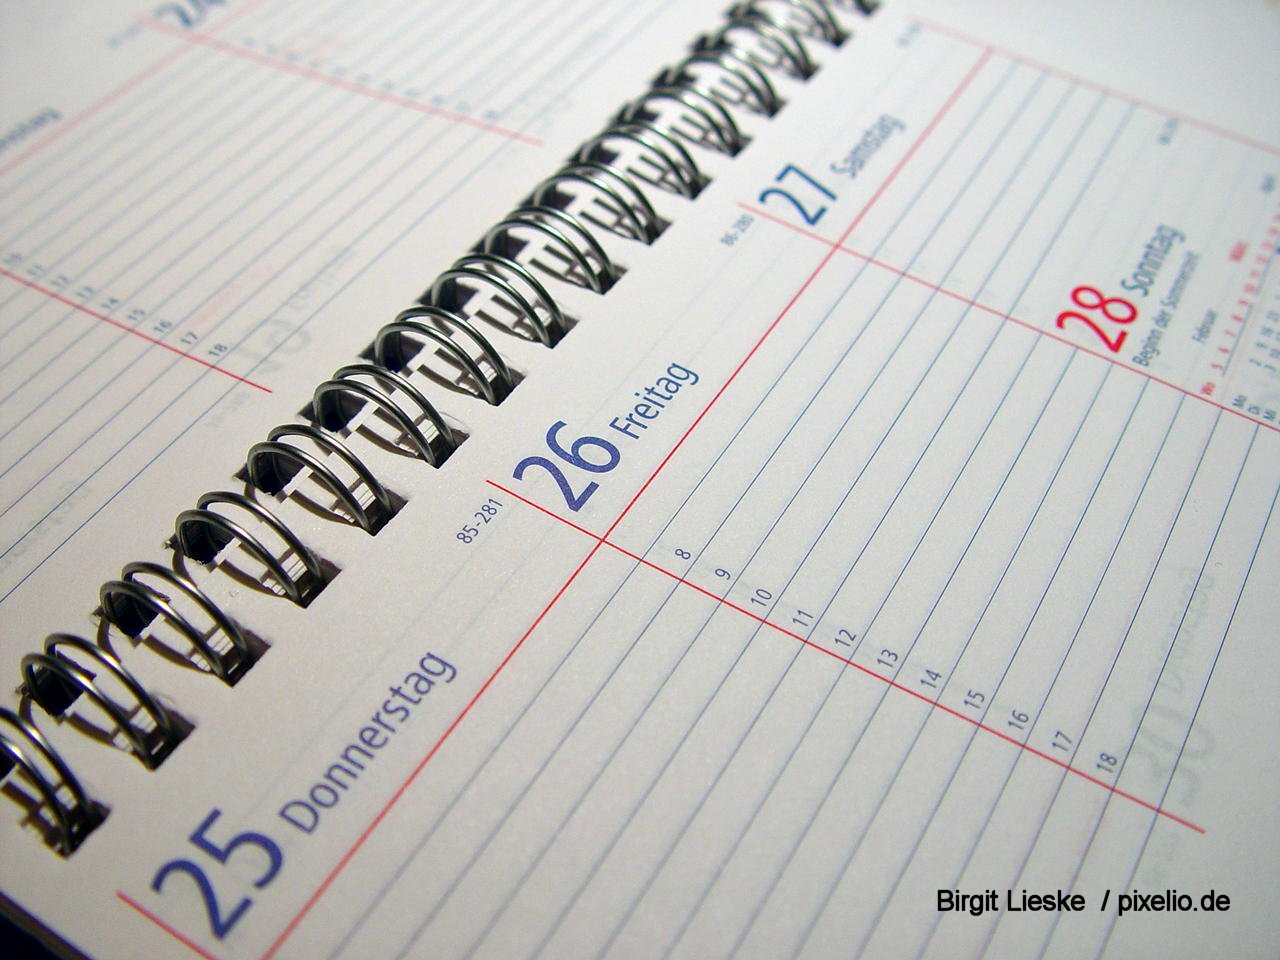 24
10
11
12
13
14
15
16
17
18
25 Donnerstag
85-281
26 Freitag
8
9
10
11
12
13
14
15
16
17
18
86-280
27 Samstag
28 Sonntag
Beginn der Sommerzeit
Februar
März
Wo 5 6 7 8 9
Mo
Di
Mi
Birgit Lieske / pixelio.de